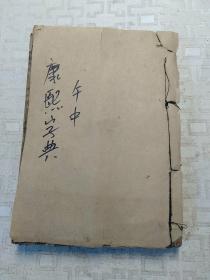 康熙字典
午中